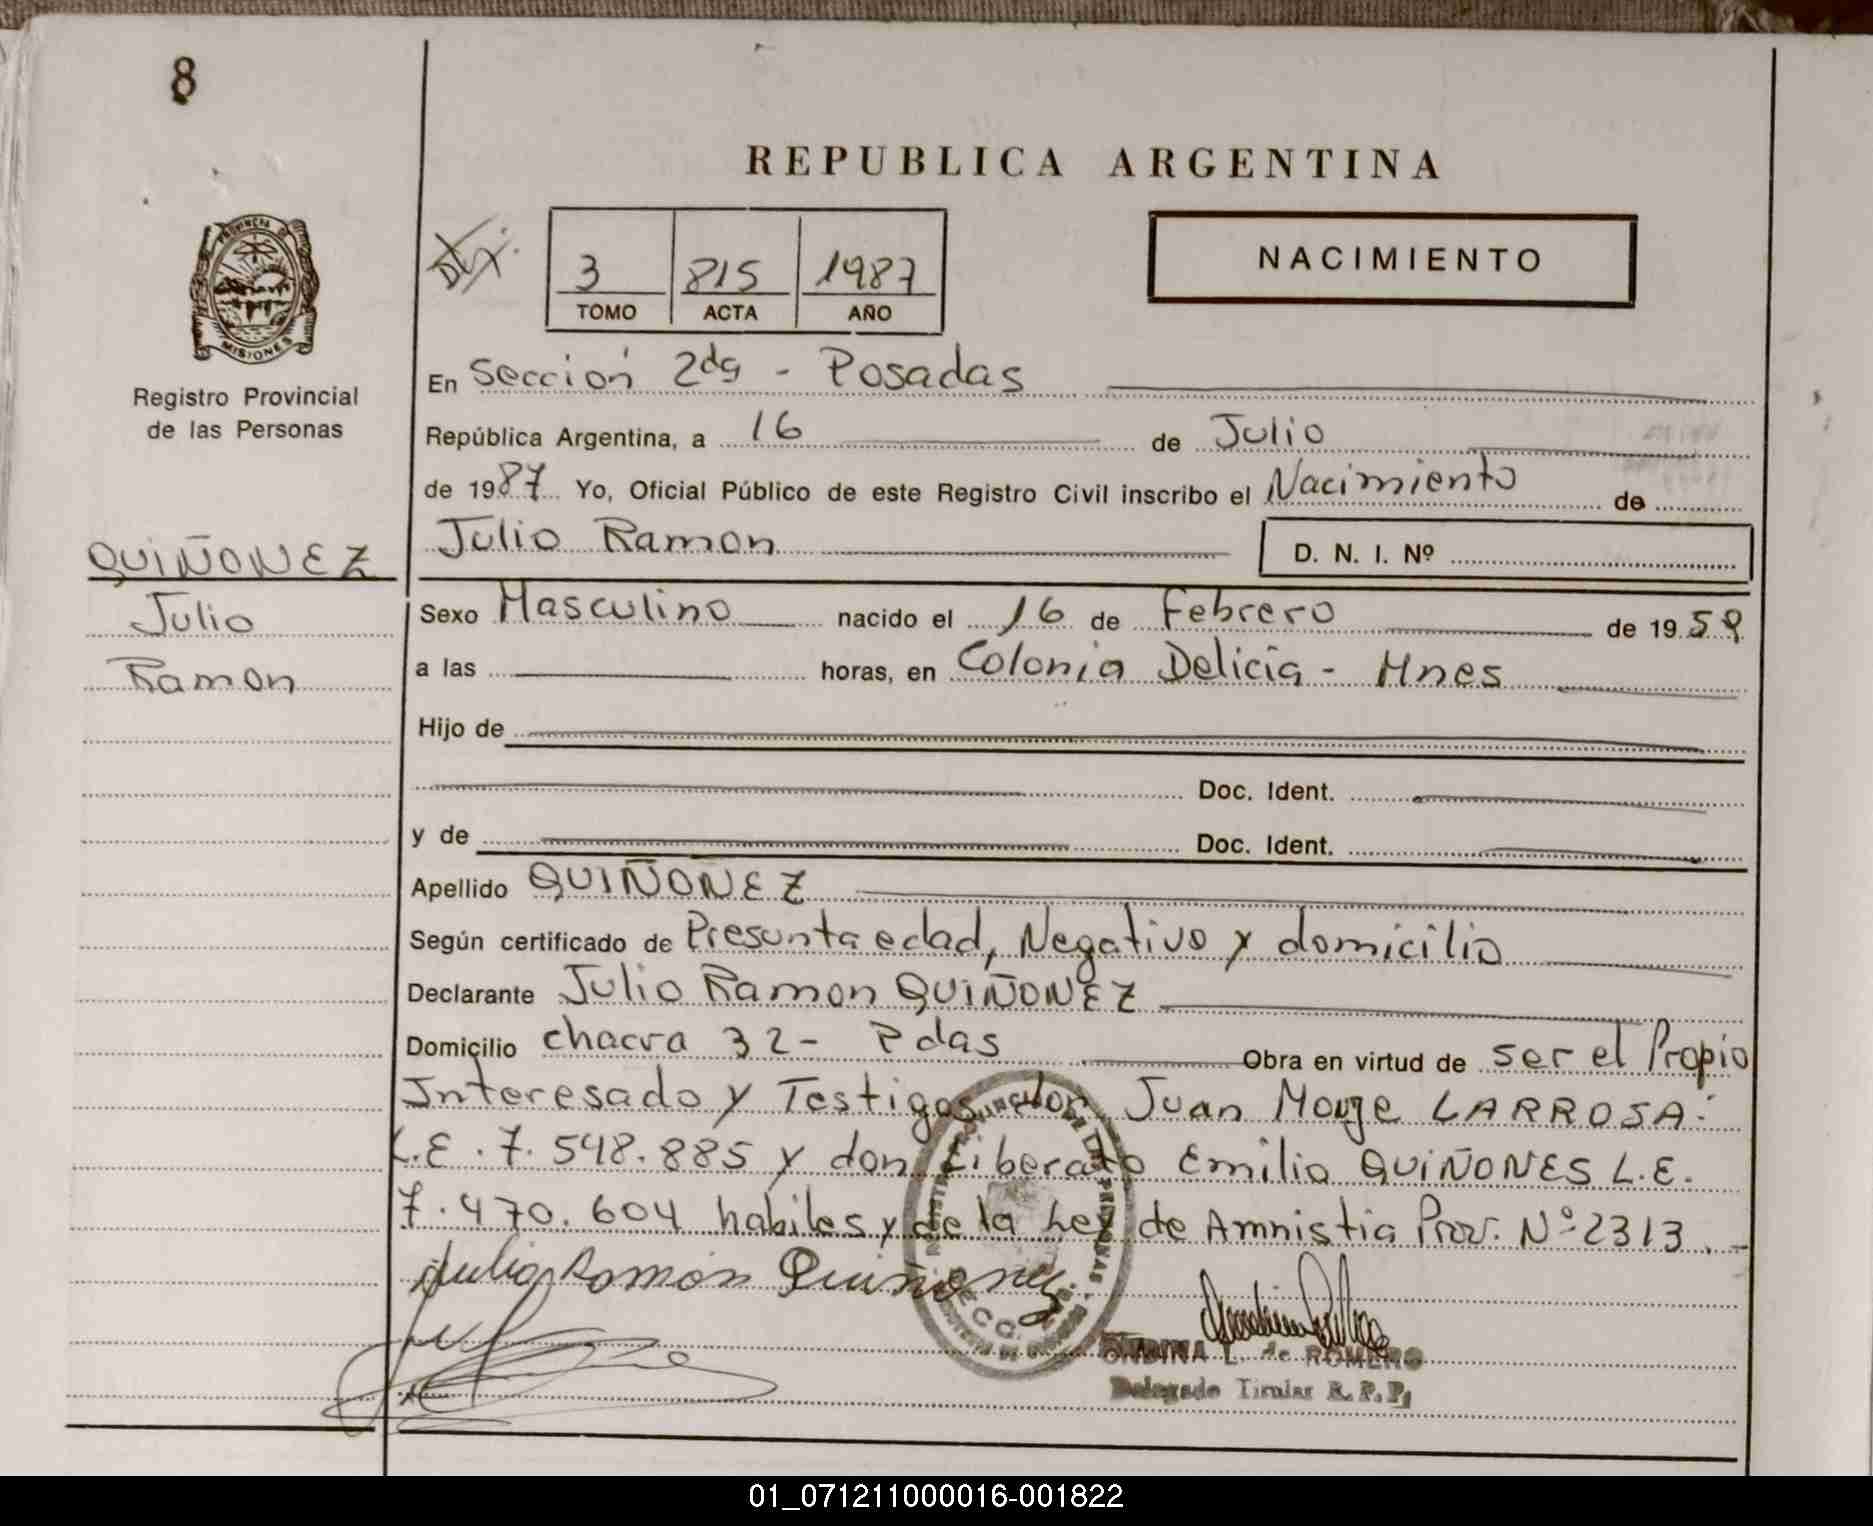 8
REPUBLICA ARGENTINA
PROVINCIA DE
MISIONES
Registro Provincial
de las Personas
3 815 1987
TOMO ACTA AÑO
NACIMIENTO
En Sección 2da - Posadas
República Argentina, a 16 de Julio
de 1987 Yo, Oficial Público de este Registro Civil inscribo el Nacimiento de
Julio Ramon D. N. I. Nº
QUIÑONEZ
Julio
Ramon
Sexo Masculino nacido el 16 de Febrero de 1959
a las horas, en Colonia Delicia - Mnes
Hijo de
Doc. Ident.
y de Doc. Ident.
Apellido QUIÑONEZ
Según certificado de Presunta edad, Negativo y domicilio
Declarante Julio Ramon QUIÑONEZ
Domicilio chacra 32 - Pdas Obra en virtud de ser el Propio
Interesado y Testigos don Juan LARROSA
L.E. 7.548.885 y don Liberato Emilio QUIÑONES L.E.
7.470.604 habiles y de la Ley de Amnistia Prov. Nº 2313.-
Julio Ramón Quiñonez
ONDINA L. de ROMERO
Delegado Titular R. P. P.
01_071211000016-001822